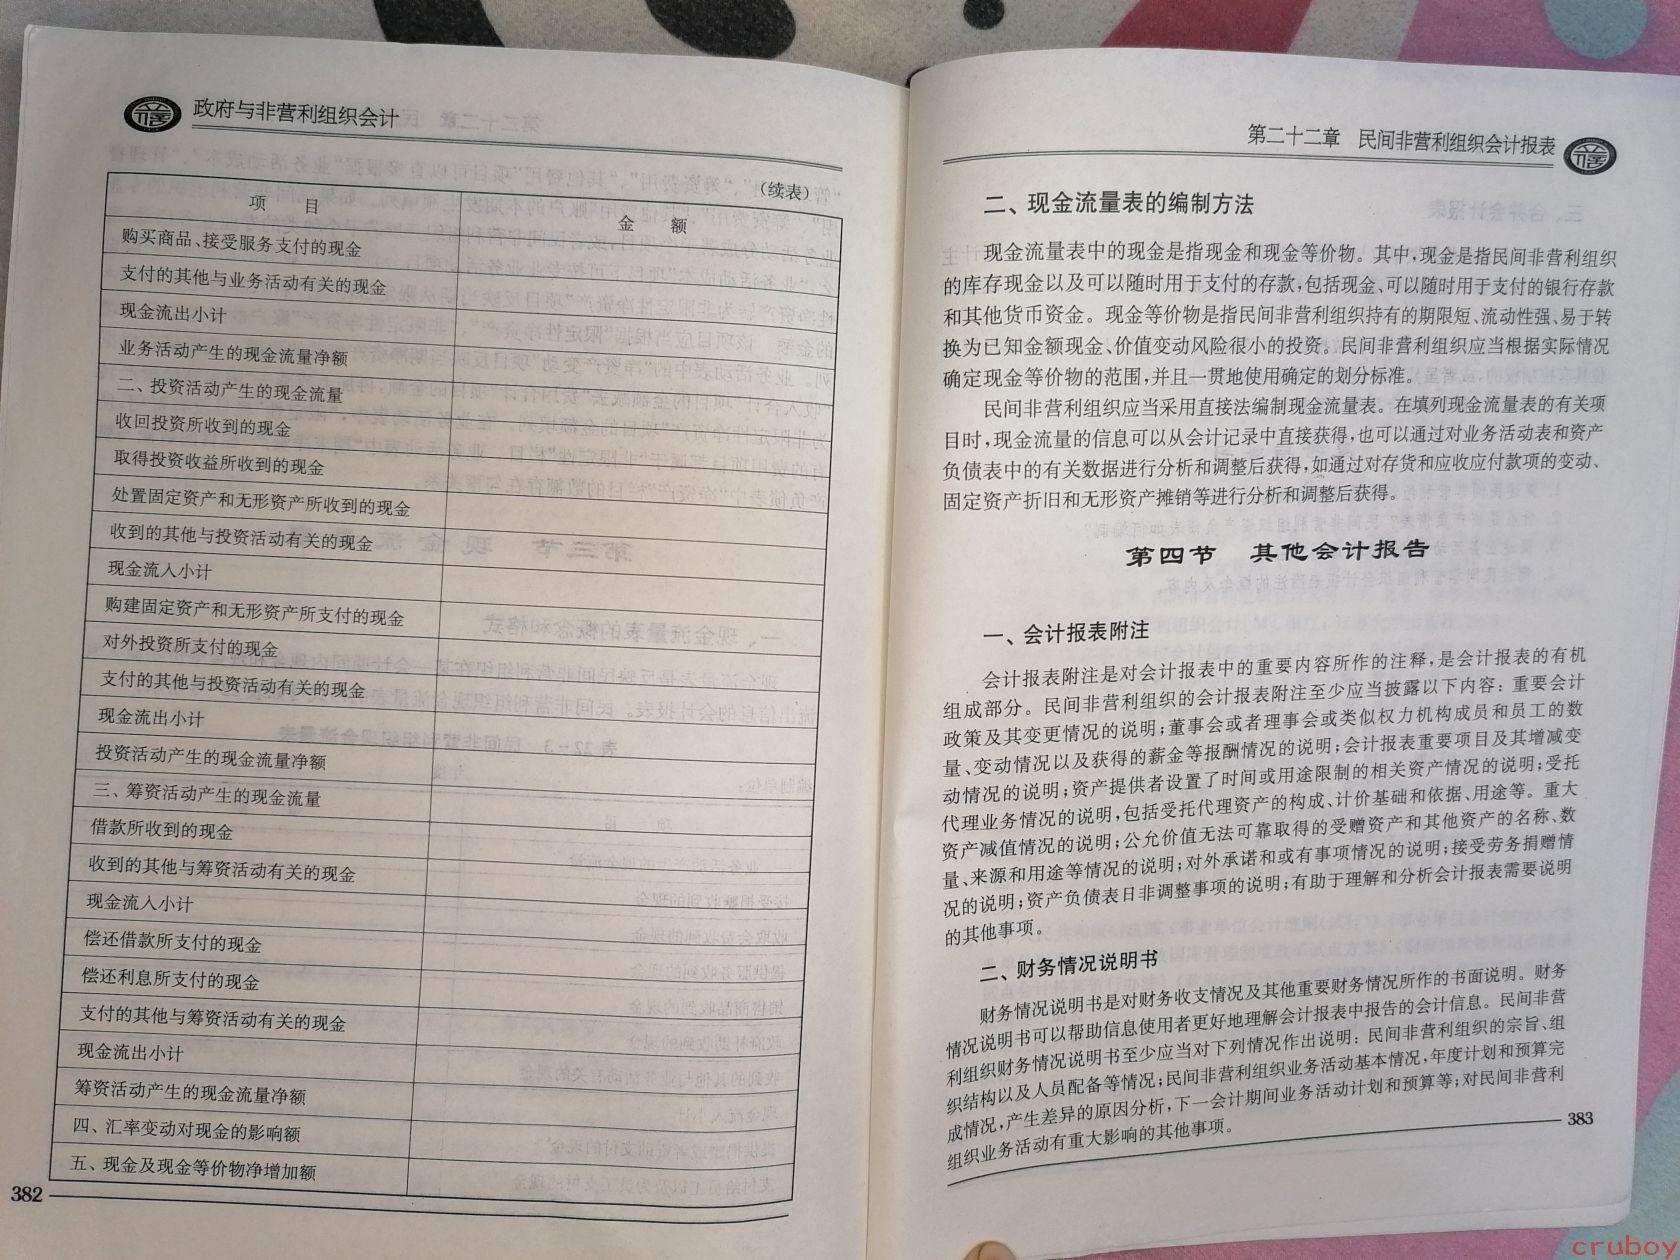 政府与非营利组织会计
(续表)
项 目
金 额
购买商品、接受服务支付的现金
支付的其他与业务活动有关的现金
现金流出小计
业务活动产生的现金流量净额
二、投资活动产生的现金流量
收回投资所收到的现金
取得投资收益所收到的现金
处置固定资产和无形资产所收到的现金
收到的其他与投资活动有关的现金
现金流入小计
购建固定资产和无形资产所支付的现金
对外投资所支付的现金
支付的其他与投资活动有关的现金
现金流出小计
投资活动产生的现金流量净额
三、筹资活动产生的现金流量
借款所收到的现金
收到的其他与筹资活动有关的现金
现金流入小计
偿还借款所支付的现金
偿还利息所支付的现金
支付的其他与筹资活动有关的现金
现金流出小计
筹资活动产生的现金流量净额
四、汇率变动对现金的影响额
五、现金及现金等价物净增加额
382
第二十二章 民间非营利组织会计报表
二、现金流量表的编制方法
现金流量表中的现金是指现金和现金等价物。其中,现金是指民间非营利组织
的库存现金以及可以随时用于支付的存款,包括现金、可以随时用于支付的银行存款
和其他货币资金。现金等价物是指民间非营利组织持有的期限短、流动性强、易于转
换为已知金额现金、价值变动风险很小的投资。民间非营利组织应当根据实际情况
确定现金等价物的范围,并且一贯地使用确定的划分标准。
民间非营利组织应当采用直接法编制现金流量表。在填列现金流量表的有关项
目时,现金流量的信息可以从会计记录中直接获得,也可以通过对业务活动表和资产
负债表中的有关数据进行分析和调整后获得,如通过对存货和应收应付款项的变动、
固定资产折旧和无形资产摊销等进行分析和调整后获得。
第四节 其他会计报告
一、会计报表附注
会计报表附注是对会计报表中的重要内容所作的注释,是会计报表的有机
组成部分。民间非营利组织的会计报表附注至少应当披露以下内容：重要会计
政策及其变更情况的说明;董事会或者理事会或类似权力机构成员和员工的数
量、变动情况以及获得的薪金等报酬情况的说明;会计报表重要项目及其增减变
动情况的说明;资产提供者设置了时间或用途限制的相关资产情况的说明;受托
代理业务情况的说明,包括受托代理资产的构成、计价基础和依据、用途等。重大
资产减值情况的说明;公允价值无法可靠取得的受赠资产和其他资产的名称、数
量、来源和用途等情况的说明;对外承诺和或有事项情况的说明;接受劳务捐赠情
况的说明;资产负债表日非调整事项的说明;有助于理解和分析会计报表需要说明
的其他事项。
二、财务情况说明书
财务情况说明书是对财务收支情况及其他重要财务情况所作的书面说明。财务
情况说明书可以帮助信息使用者更好地理解会计报表中报告的会计信息。民间非营
利组织财务情况说明书至少应当对下列情况作出说明：民间非营利组织的宗旨、组
织结构以及人员配备等情况;民间非营利组织业务活动基本情况,年度计划和预算完
成情况,产生差异的原因分析,下一会计期间业务活动计划和预算等;对民间非营利
组织业务活动有重大影响的其他事项。
383
cruboy